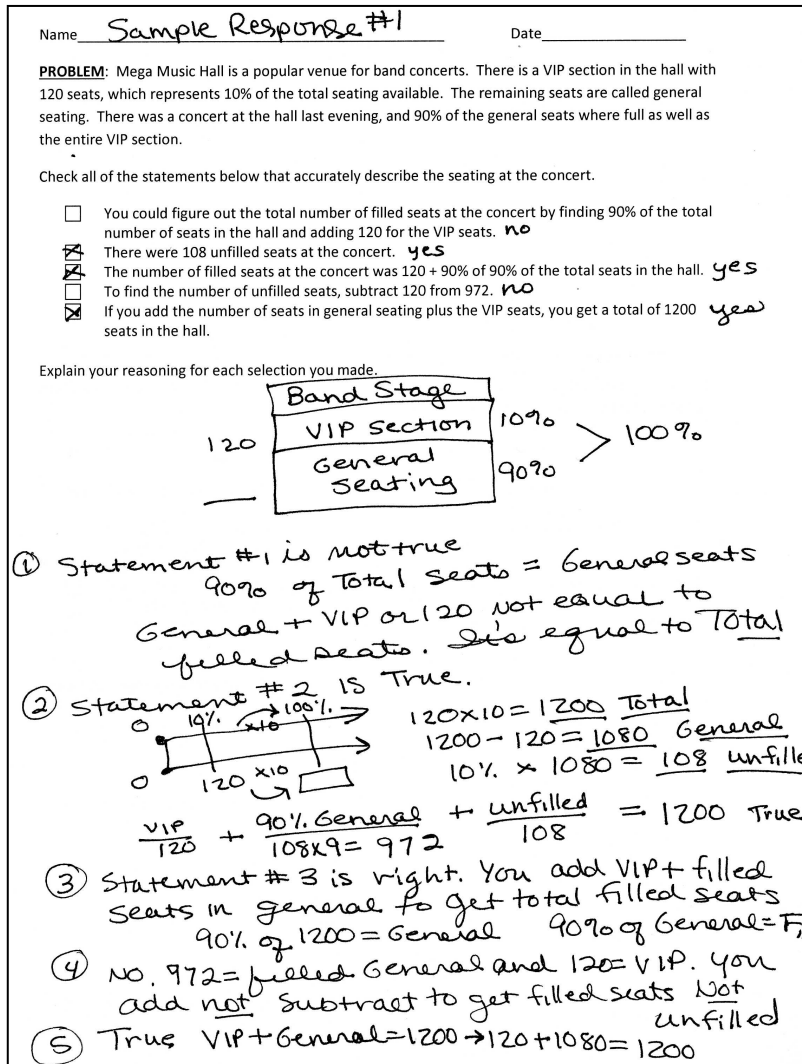 Name Sample Response #1 Date
PROBLEM: Mega Music Hall is a popular venue for band concerts. There is a VIP section in the hall with
120 seats, which represents 10% of the total seating available. The remaining seats are called general
seating. There was a concert at the hall last evening, and 90% of the general seats where full as well as
the entire VIP section.
Check all of the statements below that accurately describe the seating at the concert.
You could figure out the total number of filled seats at the concert by finding 90% of the total
number of seats in the hall and adding 120 for the VIP seats. no
There were 108 unfilled seats at the concert. yes
The number of filled seats at the concert was 120 + 90% of 90% of the total seats in the hall. yes
To find the number of unfilled seats, subtract 120 from 972. no
If you add the number of seats in general seating plus the VIP seats, you get a total of 1200 yes
seats in the hall.
Explain your reasoning for each selection you made.
Band Stage
120 VIP Section 10% > 100%
General 90%
Seating
① Statement #1 is not true
90% of Total seats = General seats
General + VIP or 120 not equal to
filled seats. It's equal to Total
② Statement #2 is True.
0 10% x10 100% 120x10 = 1200 Total
1200 - 120 = 1080 General
0 120 x10 10% x 1080 = 108 unfille
VIP/120 + 90% General/108x9 = 972 + unfilled/108 = 1200 True
③ Statement #3 is right. You add VIP + filled
seats in general to get total filled seats
90% of 1200 = General 90% of General = F
④ No. 972 = filled General and 120 = VIP. You
add not subtract to get filled seats Not
unfilled
⑤ True VIP + General = 1200 → 120 + 1080 = 1200